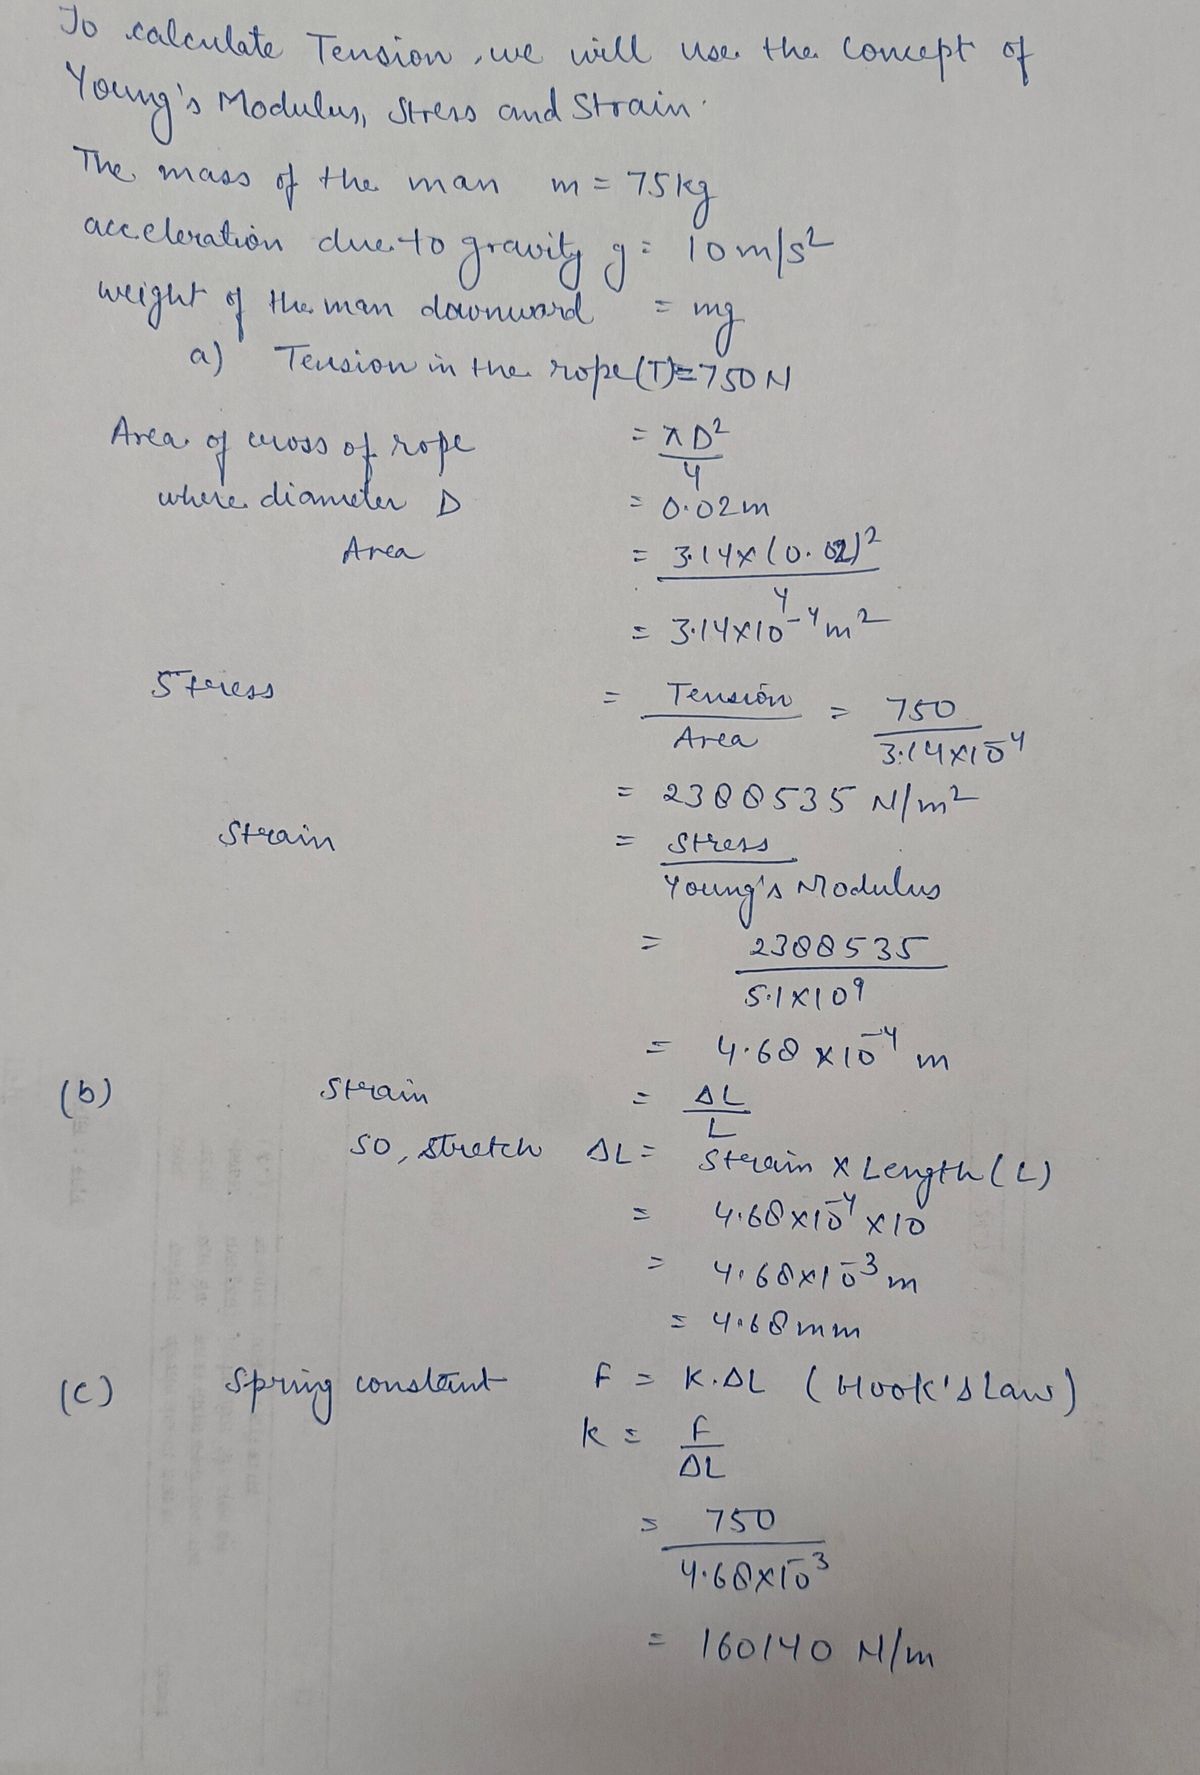 To calculate Tension, we will use the concept of
Young's Modulus, Stress and Strain.
The mass of the man m = 75kg
acceleration due to gravity g = 10 m/s²
weight of the man downward = mg
a) Tension in the rope (T) = 750 N
Area of cross of rope = πD²/4
where diameter D = 0.02m
Area = 3.14×(0.02)²/4
= 3.14×10⁻⁴ m²
Stress = Tension/Area = 750/3.14×10⁻⁴
= 2388535 N/m²
Strain = Stress/Young's Modulus
= 2388535/5.1×10⁹
= 4.68 ×10⁻⁴ m
(b) Strain = ΔL/L
SO, stretch ΔL = Strain × Length (L)
= 4.68×10⁻⁴ ×10
= 4.68×10⁻³ m
= 4.68mm
(C) Spring constant F = K.ΔL (Hook's Law)
K = F/ΔL
= 750/4.68×10⁻³
= 160140 N/m